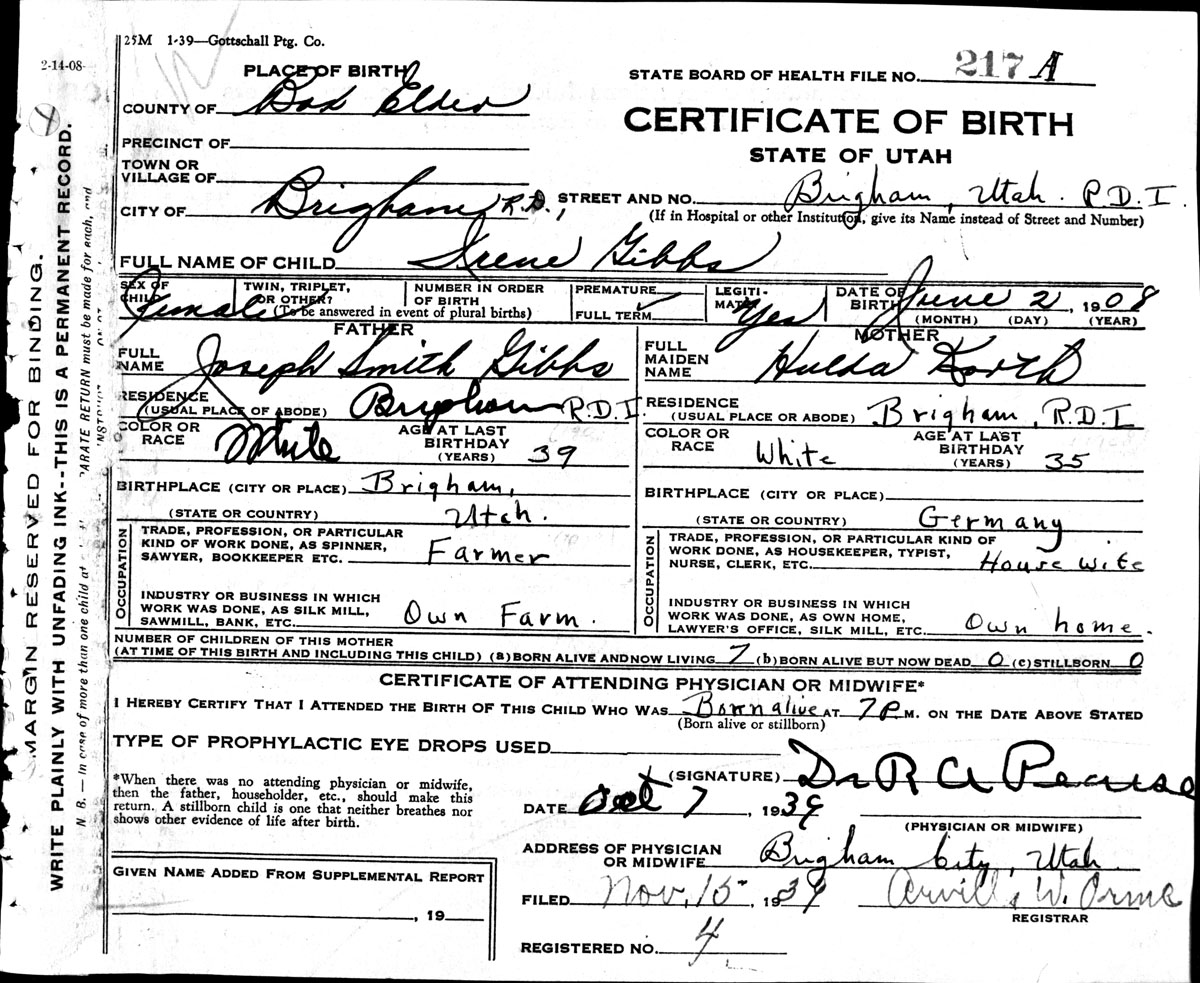 25M 1-39—Gottschall Ptg. Co.
2-14-08
PLACE OF BIRTH
STATE BOARD OF HEALTH FILE NO. 217 A
COUNTY OF Box Elder
CERTIFICATE OF BIRTH
PRECINCT OF
STATE OF UTAH
TOWN OR
VILLAGE OF
CITY OF Brigham R.D., STREET AND NO. Brigham, Utah. R.D.I.
(If in Hospital or other Institution, give its Name instead of Street and Number)
FULL NAME OF CHILD Irene Gibbs
SEX OF CHILD Female
TWIN, TRIPLET, OR OTHER?
(To be answered in event of plural births)
NUMBER IN ORDER OF BIRTH
PREMATURE
FULL TERM ✓
LEGITIMATE Yes
DATE OF BIRTH June 2, 1908
(MONTH) (DAY) (YEAR)
FATHER
FULL NAME Joseph Smith Gibbs
RESIDENCE
(USUAL PLACE OF ABODE) Brigham R.D.I.
COLOR OR RACE White
AGE AT LAST BIRTHDAY (YEARS) 39
BIRTHPLACE (CITY OR PLACE) Brigham,
(STATE OR COUNTRY) Utah.
OCCUPATION
TRADE, PROFESSION, OR PARTICULAR
KIND OF WORK DONE, AS SPINNER,
SAWYER, BOOKKEEPER ETC. Farmer
INDUSTRY OR BUSINESS IN WHICH
WORK WAS DONE, AS SILK MILL,
SAWMILL, BANK, ETC. Own Farm.
MOTHER
FULL MAIDEN NAME Hulda Korth
RESIDENCE
(USUAL PLACE OR ABODE) Brigham, R.D.I
COLOR OR RACE White
AGE AT LAST BIRTHDAY (YEARS) 35
BIRTHPLACE (CITY OR PLACE)
(STATE OR COUNTRY) Germany
OCCUPATION
TRADE, PROFESSION, OR PARTICULAR KIND OF
WORK DONE, AS HOUSEKEEPER, TYPIST,
NURSE, CLERK, ETC. House wife
INDUSTRY OR BUSINESS IN WHICH
WORK WAS DONE, AS OWN HOME,
LAWYER'S OFFICE, SILK MILL, ETC. Own home.
NUMBER OF CHILDREN OF THIS MOTHER
(AT TIME OF THIS BIRTH AND INCLUDING THIS CHILD) (a) BORN ALIVE AND NOW LIVING 7 (b) BORN ALIVE BUT NOW DEAD 0 (c) STILLBORN 0
CERTIFICATE OF ATTENDING PHYSICIAN OR MIDWIFE*
I HEREBY CERTIFY THAT I ATTENDED THE BIRTH OF THIS CHILD WHO WAS Born alive AT 7 P.M. ON THE DATE ABOVE STATED
(Born alive or stillborn)
TYPE OF PROPHYLACTIC EYE DROPS USED
*When there was no attending physician or midwife,
then the father, householder, etc., should make this
return. A stillborn child is one that neither breathes nor
shows other evidence of life after birth.
(SIGNATURE) Dr R A Pearse
DATE Oct 7, 1939
(PHYSICIAN OR MIDWIFE)
ADDRESS OF PHYSICIAN
OR MIDWIFE Brigham City, Utah
GIVEN NAME ADDED FROM SUPPLEMENTAL REPORT
, 19
FILED Nov. 15 1939 W. Orme
REGISTRAR
REGISTERED NO. 4
MARGIN RESERVED FOR BINDING.
WRITE PLAINLY WITH UNFADING INK--THIS IS A PERMANENT RECORD.
N. B. — In case of more than one child at
ARATE RETURN must be made for each, and